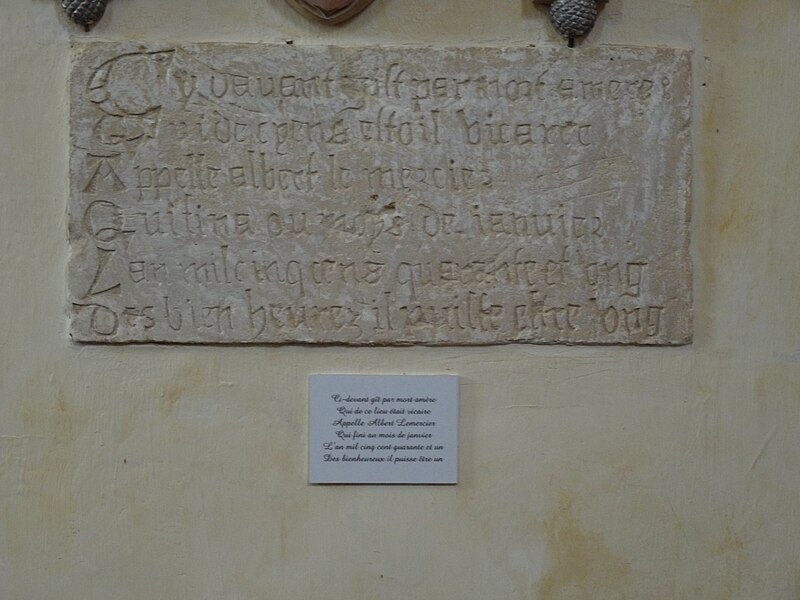 Cy davant gist par mort amere
Qui de cyens estoit vicaire
Appelle albert le mercier
Qui fina ou moys de ianvier
Lan mil cinq cens quarante et ung
Des bien heurez il puisse estre ung
Ci-devant gît par mort amère
Qui de ce lieu était vicaire
Appelle Albert Lemercier
Qui fini au mois de janvier
L'an mil cinq cent quarante et un
Des bienheureux il puisse être un